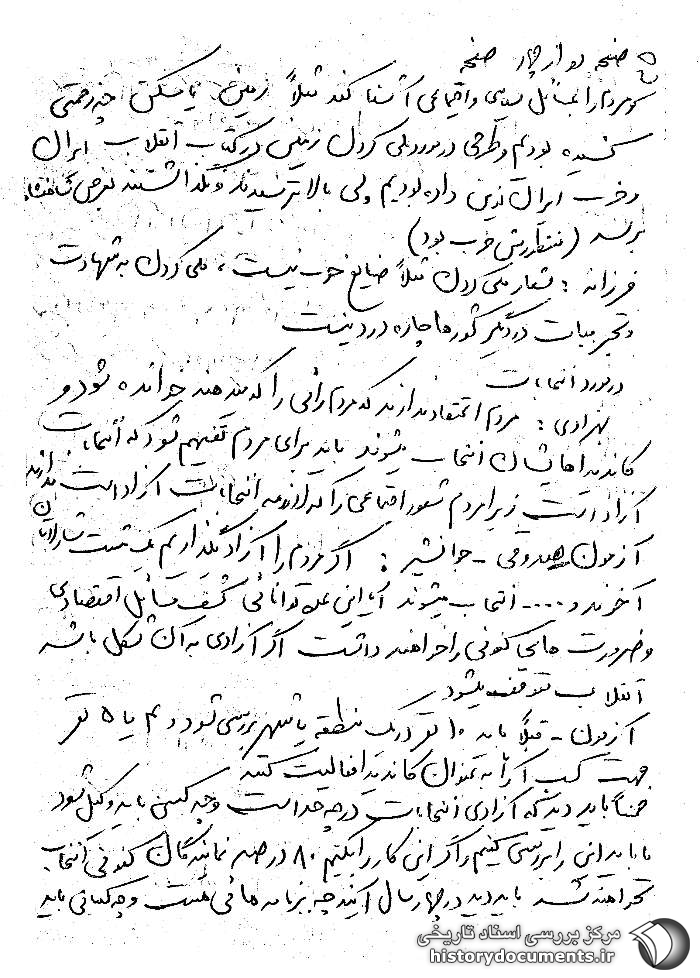 صفحه دو از چهار صفحه
که مردم را به مسائل سیاسی و اجتماعی آشنا کند مثلاً زمین یا مسکن چه زحمتی
کشیده بودیم و طرحی در مورد ملی کردن زمین در کتاب انقلاب ایران
و حزب ایران نوین داده بودیم ولی بالا ترسیدند و نگذاشتند بعرض شاهنشاه
برسد (منتقد روش حزب بود)
فرزانه : شعار ملی کردن مثلاً صنایع خوب نیست ، ملی کردن به شهادت
و تجربیات در دیگر کشورها چاره درد نیست
در مورد انتخابات
بهزادی : مردم اعتقاد ندارند که مردم رائی را که میدهند خوانده شود و
کاندیداهایشان انتخاب میشوند باید برای مردم تفهیم شود که انتخابات
آزاد است زیرا مردم شعور اجتماعی را که لازمه انتخابات آزاد است ندارند
آزمون - جوانشیر : اگر مردم را آزاد بگذاریم یک مشت شارلاتان
آخوند و .... انتخاب میشوند آیا این عده توانائی کشف مسائل اقتصادی
و ضرورت های کنونی را خواهند داشت اگر آزادی به این شکل باشد
انقلاب متوقف میشود
آزمون - قبلاً باید ۱۰ نفر در یک منطقه یا شهر بررسی شود و یا ۵ نفر
جهت کسب آراء به عنوان کاندیدا فعالیت کنند
ضمناً باید دید که آزادی انتخابات در چه حد است و چه کسی باید وکیل شود
ما باید این را بررسی کنیم و اگر این کار را بکنیم ۸۰ درصد نمایندگان کنونی انتخاب
نخواهند شد باید دید در چهار سال آینده چه برنامه هائی هست و چه کسانی باید
مرکز بررسی اسناد تاریخی
historydocuments.ir